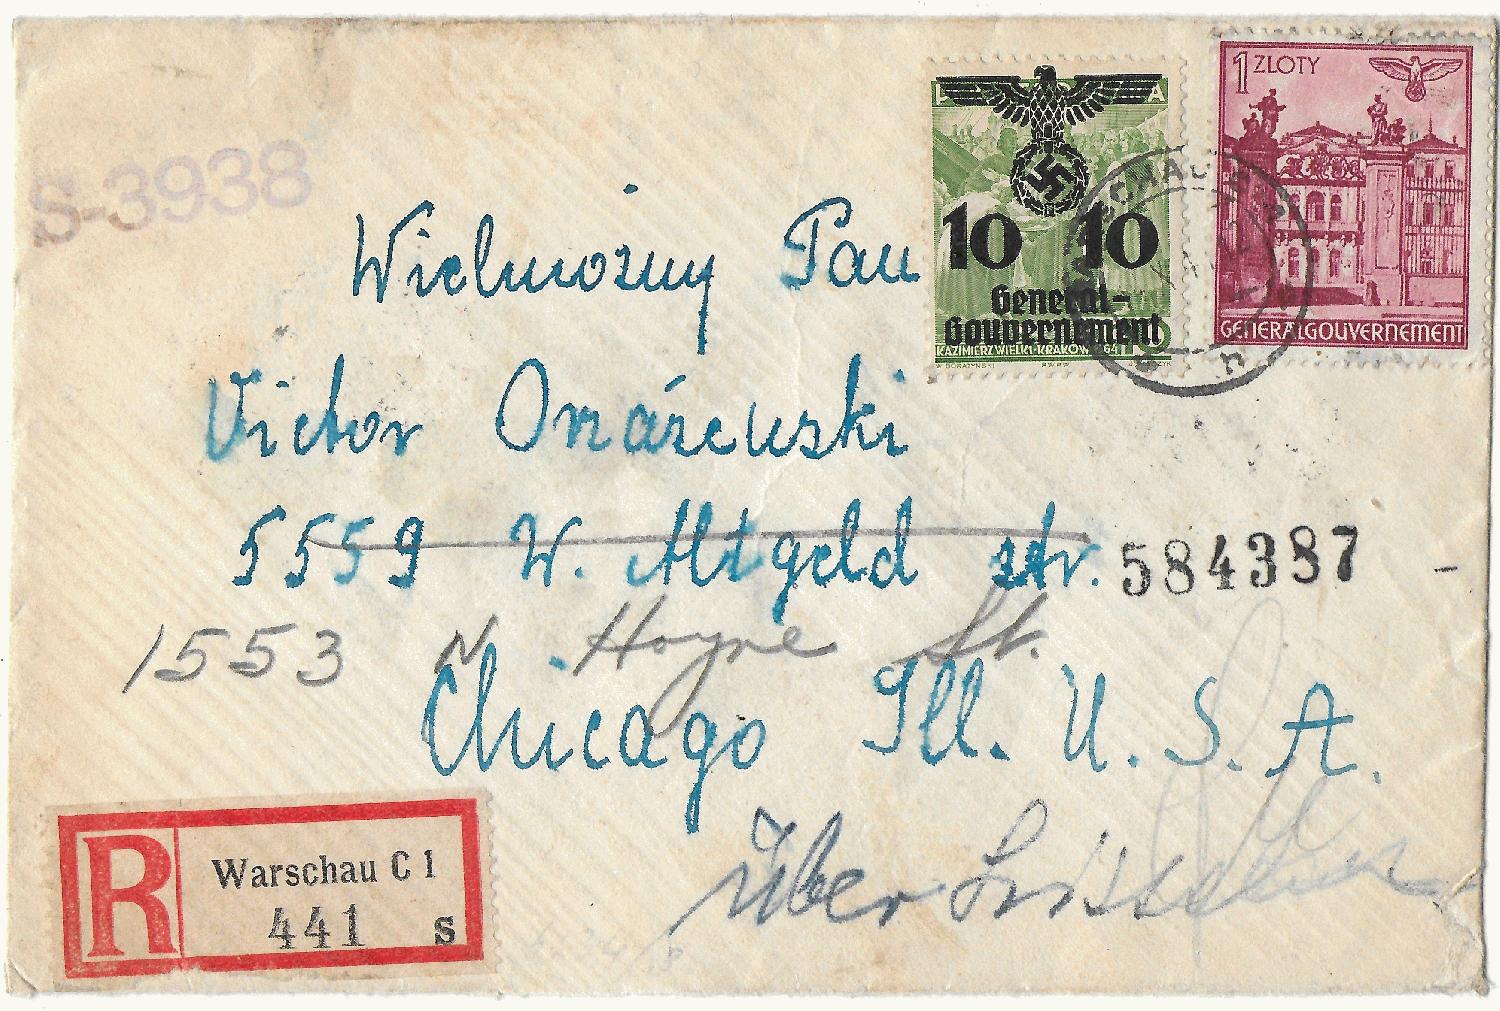 S-3938
10 10
General-
Gouvernement
KAZIMIERZ WIELKI-KRAKÓW
1 ZLOTY
GENERALGOUVERNEMENT
Wielmożny Pan
Victor
5559 W. Altgeld str. 584387
1553 N. Hoyne St.
Chicago Ill. U. S. A.
Über
R Warschau C 1
441 s